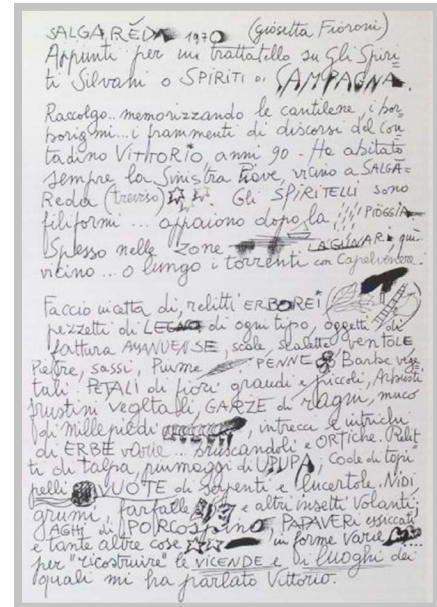 SALGARÉDA 1970 (Giosetta Fioroni)
Appunti per un trattatello su Gli Spiri=
ti Silvani o SPIRITI DI CAMPAGNA.
Raccolgo.. memorizzando le cantilene, i bor=
borigmi... i frammenti di discorsi del con=
tadino VITTORIO, anni 90. Ha abitato
sempre la Sinistra Piave, vicino a SALGA=
Reda (treviso). Gli SPIRITELLI sono
filiformi ... appaiono dopo la PIOGGIA.
Spesso nelle zone LAGUNARI qui
vicino ... o lungo i torrenti con Capelvenere.
Faccio incetta di, relitti ERBOREI
pezzetti di LEGNO di ogni tipo, oggetti di
fattura AMANUENSE, scale, scalette, ventole
Pietre, sassi, Piume PENNE Barbe vege
tali PETALI di fiori grandi e piccoli, Arbusti
frustini vegetali, GARZE di ragni, muco
di millepiedi, intrecci e intrichi
di ERBE varie ... bruscandoli e ORTiche.
ti di talpa, piumaggi di UPUPA, Code di topi
pelli VUOTE di serpenti e lucertole. NiDi
grumi, farfalle e altri insetti Volanti,
AGHI di PORCOSpino PAPAVERi essiccati
e tante altre cose in forme varie
per "ricostruire" le VICENDE e i luoghi dei
quali mi ha parlato Vittorio.